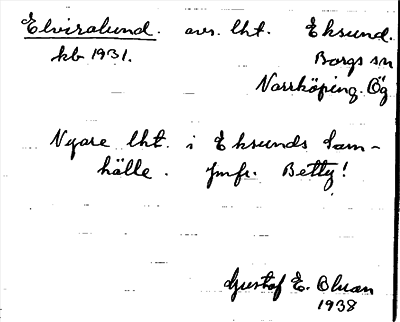 Elviralund. avs. lht. Eksund.
kb 1931. Borgs sn
Norrköping. Ög
Nyare lht. i Eksunds sam-
hälle. Jmfr. Betty!
Gustaf E. Olsson
1938